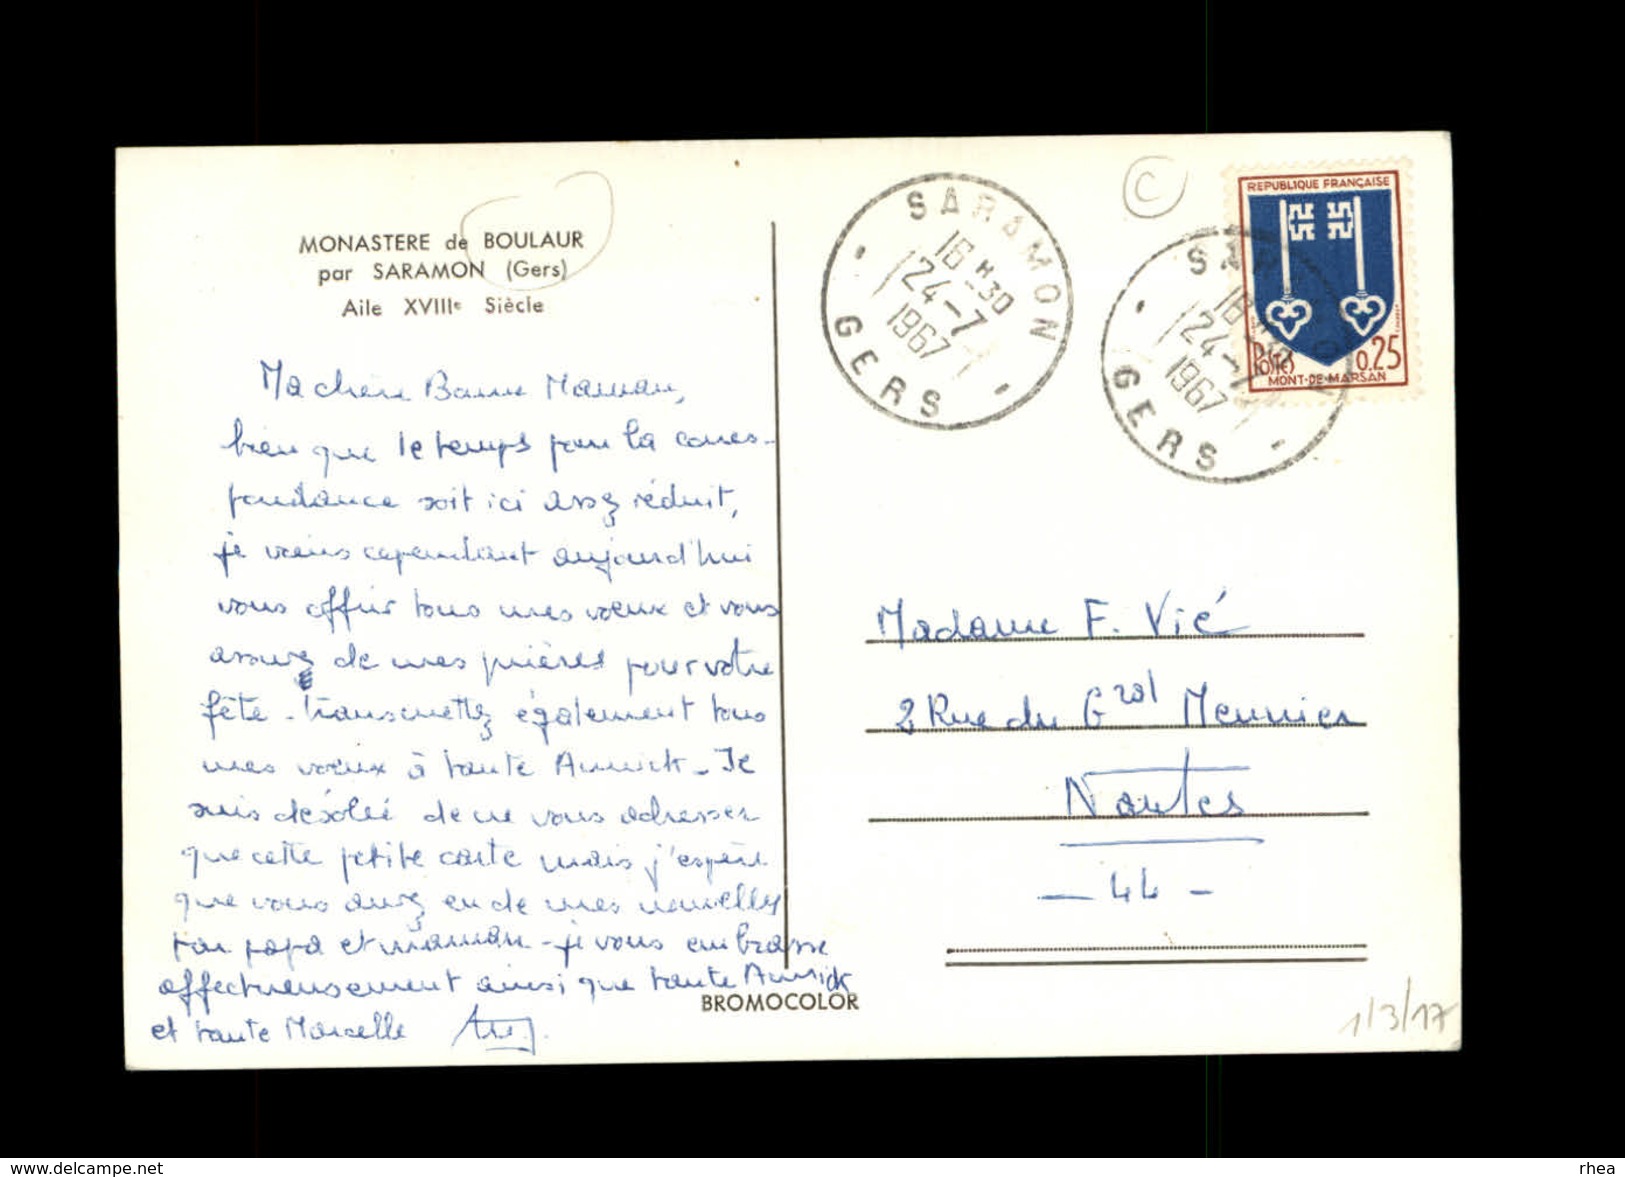 MONASTERE de BOULAUR
par SARAMON (Gers)
Aile XVIIIe Siècle
Ma chère Bonne Maman,
bien que le temps pour la corres-
pondance soit ici assez réduit,
je viens cependant aujourd'hui
vous offrir tous mes voeux et vous
assurez de mes prières pour votre
fête - transmettez également tous
mes voeux à tante Annick - Je
suis désolé de ne vous adresser
que cette petite carte mais j'espère
que vous avez eu de mes nouvelles
par papa et maman - je vous embrasse
affectueusement ainsi que tante Annick
et tante Marcelle
BROMOCOLOR
C
SARAMON
16 H -30
24 -7
1967
GERS
SARAMON
16 H -30
24 -7
1967
GERS
REPUBLIQUE FRANÇAISE
Postes 0,25
MONT-DE-MARSAN
Madame F. Vié
2 Rue du Gral Meunier
Nantes
- 44 -
1/3/17
www.delcampe.net
rhea